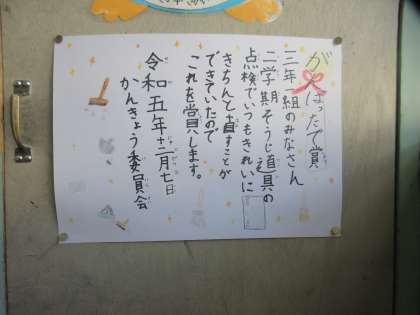 がんばったで賞
三年一組のみなさん
二学期そうじ道具の
点検でいつもきれいに
きちんと直すことが
できていたので
これを賞します。
令和五年十二月七日
かんきょう委員会